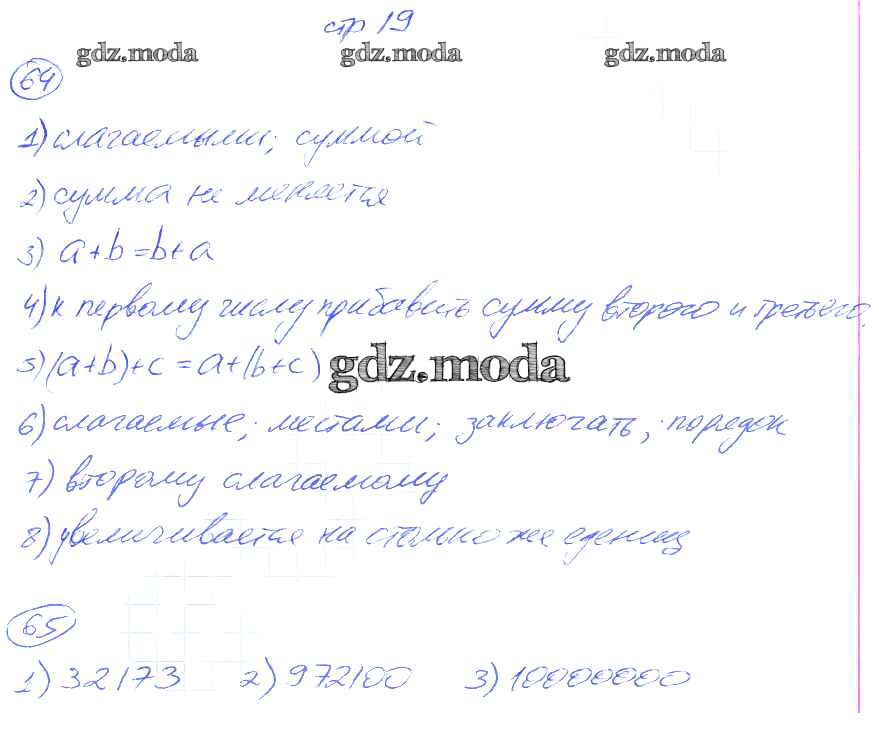 стр 19
gdz.moda gdz.moda gdz.moda
64
1) слагаемыми; суммой
2) сумма не меняется
3) a+b=b+a
4) к первому числу прибавить сумму второго и третьего.
5) (a+b)+c=a+(b+c) gdz.moda
6) слагаемые; местами; заключать; порядок
7) второму слагаемому
8) увеличивается на столько же едениц
65
1) 32173 2) 972100 3) 10000000